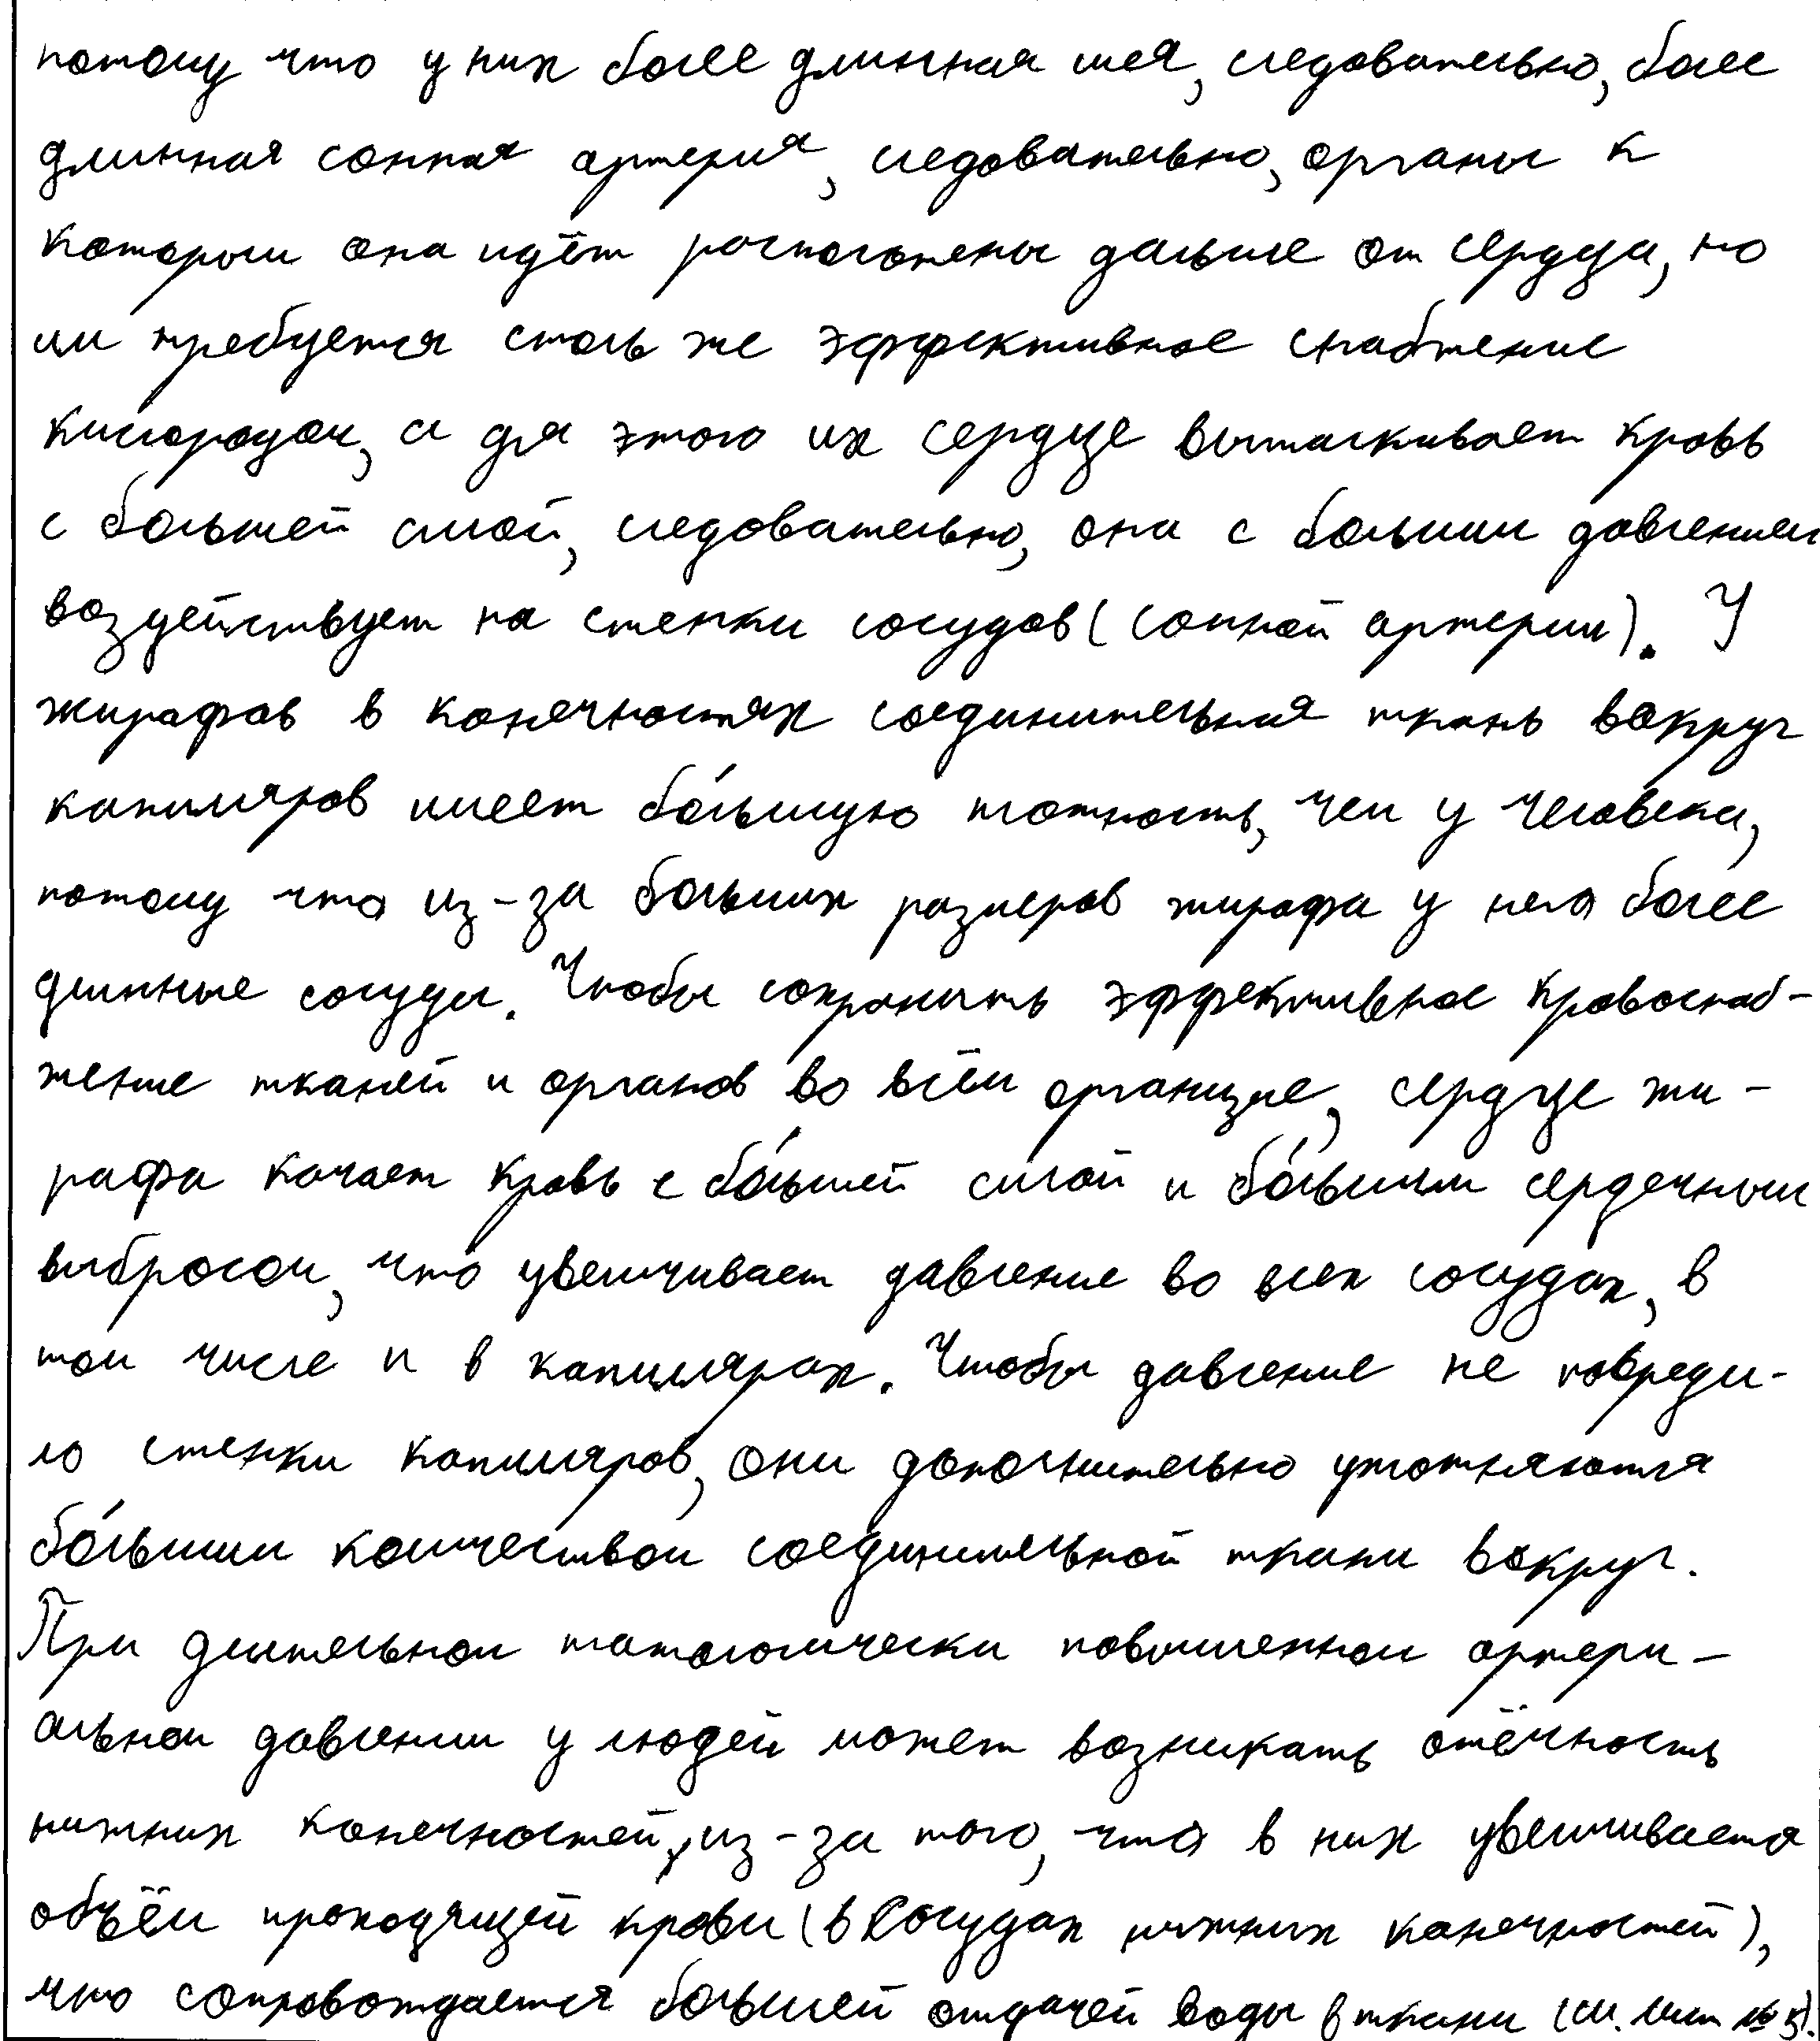 потому что у них более длинная шея, следовательно, более
длинная сонная артерия, следовательно, органы к
которым она идёт расположены дальше от сердца, но
им требуется столь же эффективное снабжение
кислородом, а для этого их сердце выталкивает кровь
с большей силой, следовательно, она с большим давлением
воздействует на стенки сосудов (сонной артерии). У
жирафов в конечностях соединительная ткань вокруг
капилляров имеет бо́льшую плотность, чем у человека,
потому что из-за больших размеров жирафа у него более
длинные сосуды. Чтобы сохранить эффективное кровоснаб-
жение тканей и органов во всём организме, сердце жи-
рафа качает кровь с бо́льшей силой и бо́льшим сердечным
выбросом, что увеличивает давление во всех сосудах, в
том числе и в капилярах. Чтобы давление не повреди-
ло стенки капиляров, они дополнительно уплотняются
бо́льшим количеством соединительной ткани вокруг.
При длительном патологически повышенном артери-
альном давлении у людей может возникать отёчность
нижних конечностей, из-за того, что в них увеличивается
объём проходящей крови (в сосудах нижних конечностей),
что сопровождается большей отдачей воды в ткани (см. лист № 5).